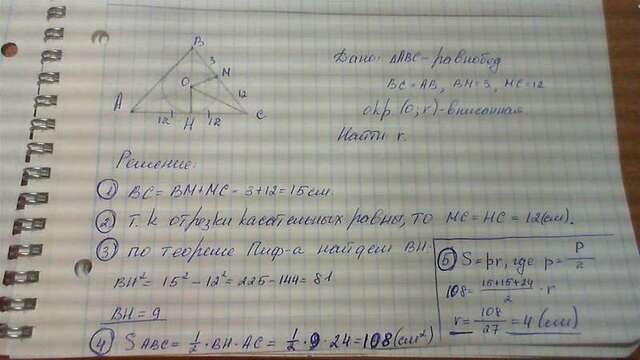 B
3
M
O
12
A
C
12
H
12
Дано: △ABC - равнобед
BC = AB, BM = 3, MC = 12
окр (O; r) - вписанная
Найти r.
Решение:
① BC = BM + MC = 3 + 12 = 15 см.
② Т. к отрезки касательных равны, то MC = HC = 12 (см).
③ по теореме Пиф-а найдем BH.
BH² = 15² - 12² = 225 - 144 = 81
BH = 9
④ S ABC = 1/2 · BH · AC = 1/2 · 9 · 24 = 108 (см²)
⑤ S = pr, где p = P/2
108 = (15+15+24)/2 · r
r = 108/27 = 4 (см)